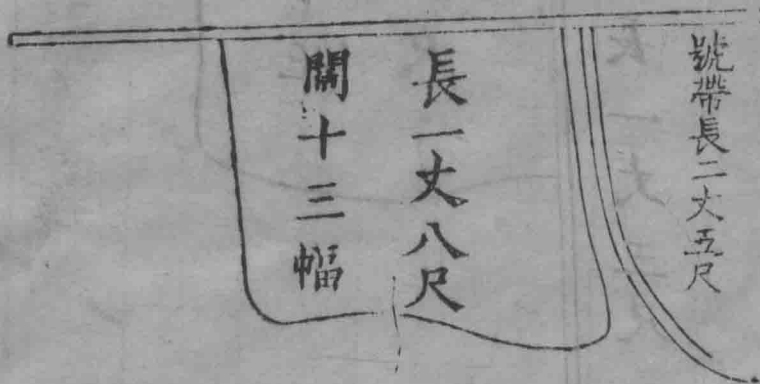 號帶長二丈五尺
長一丈八尺
闊十三幅